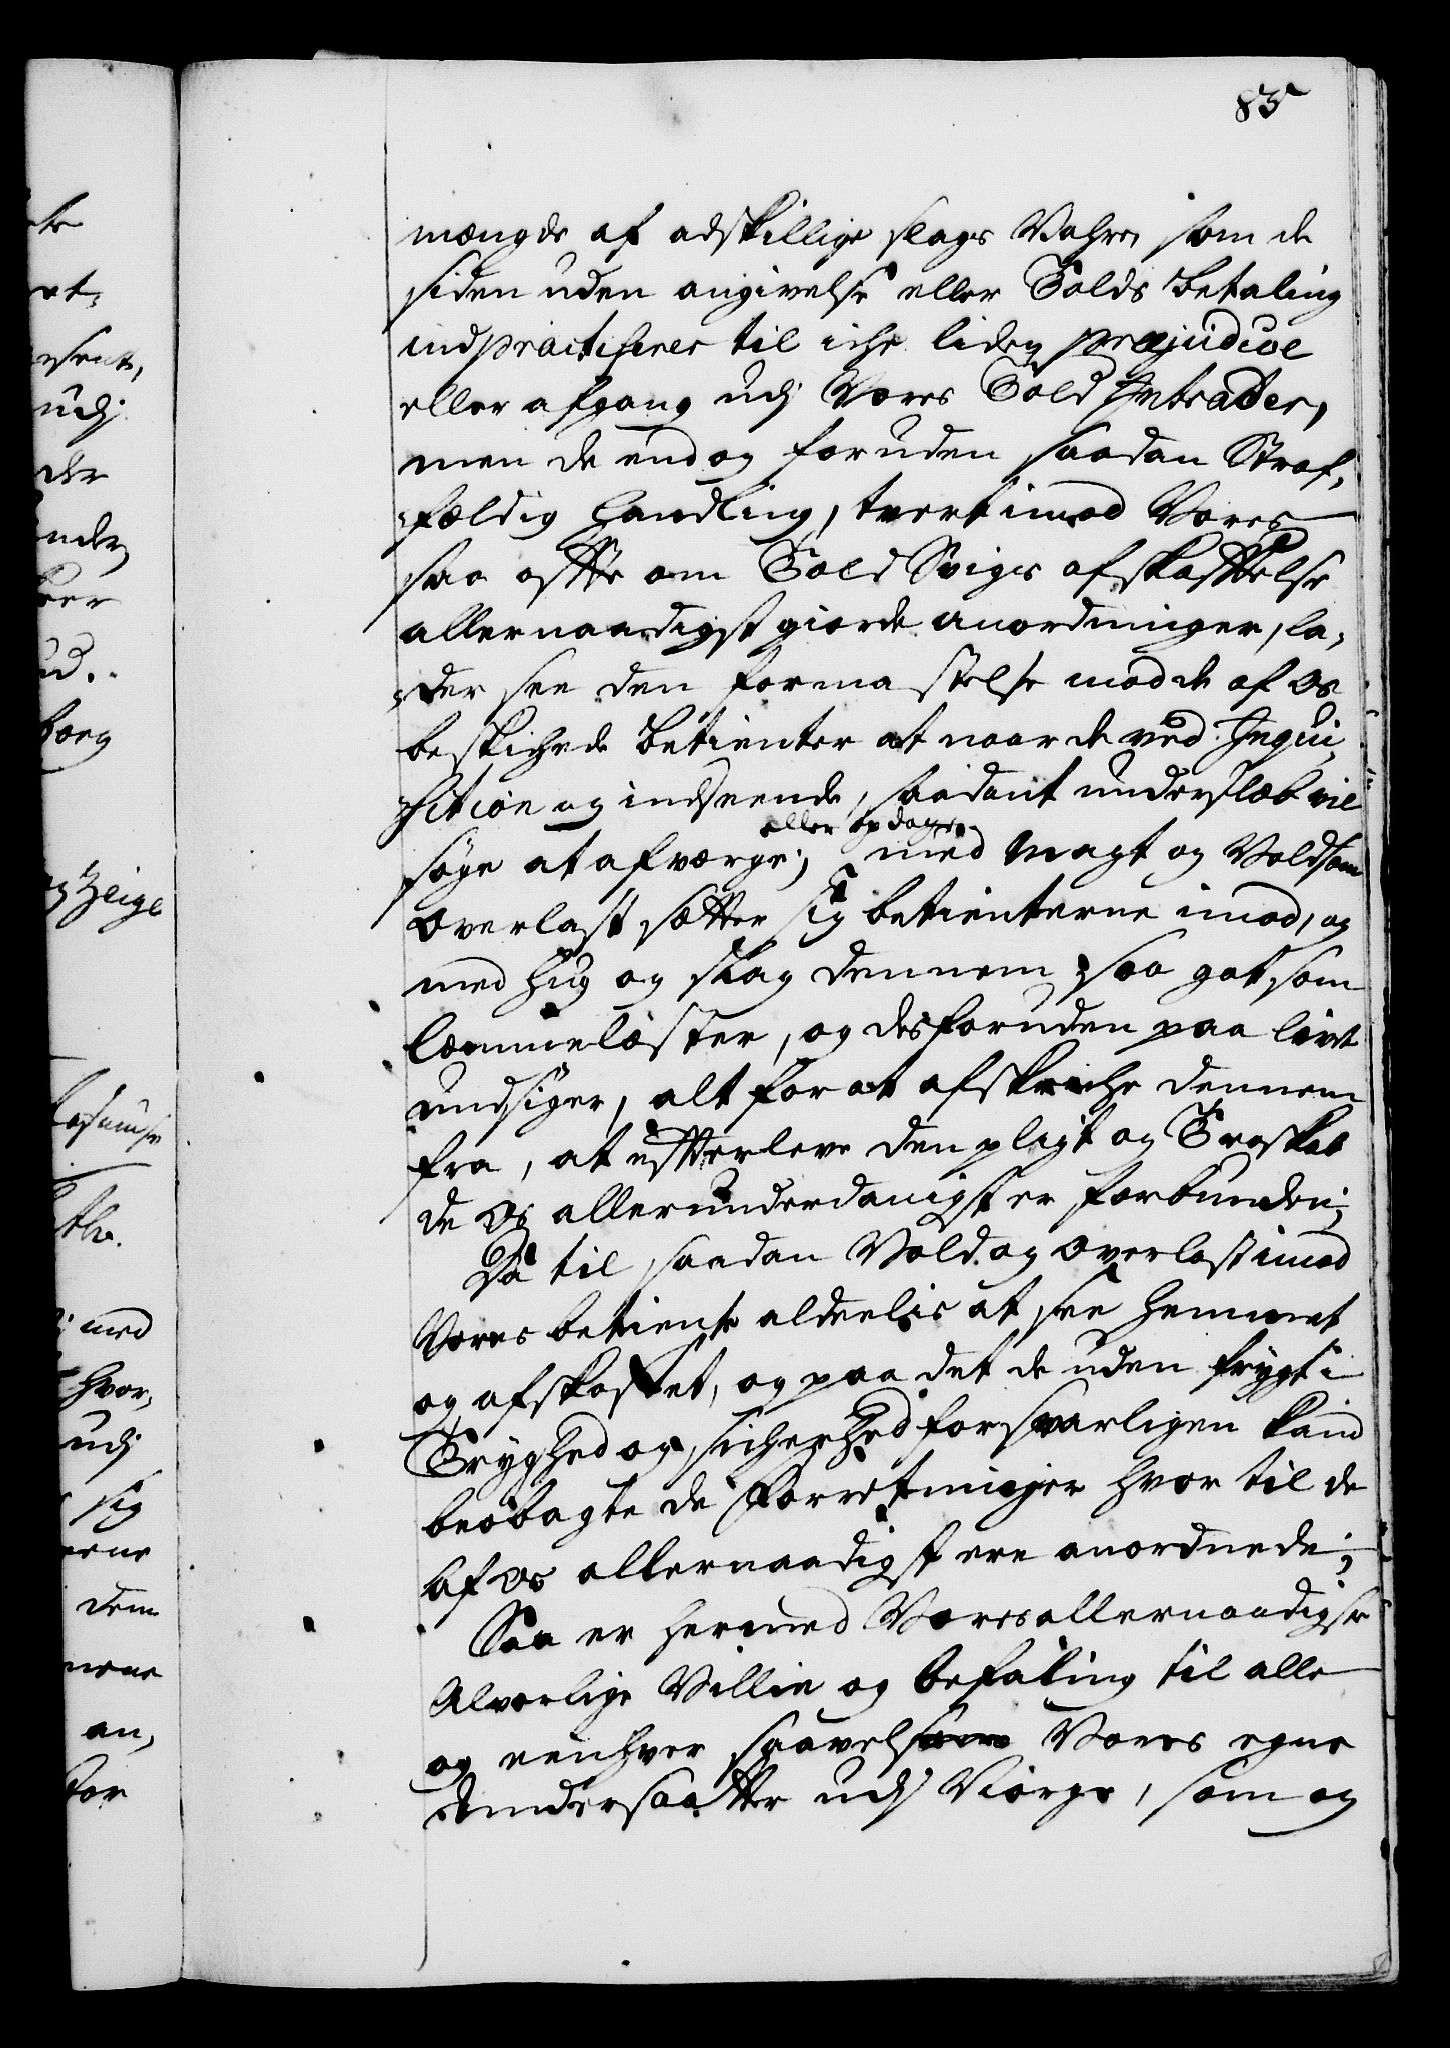 85
mængde af adskillige slags Vahre, som de
siden uden angivelse eller Tolds betaling
indpractiserer til iche liden præjudice
eller afgang udj Vores Told Intrader,
men de endog foruden saadan Straf,
fældig handling, tvertimod Vores
saa ofte om Told Svigs afskaffelse
allernaadigst giorde anordninger, la,
der see den formastelse mod de af os
beskichede betienter at naar de ved Inqui,
sition og indseende, saadant underslæb vil
søge at afværge; eller opdage med Magt og Voldsom
overlast sætter sig betienterne imod, og
med hug og slag dennem saa got som
læmmelæster, og desforuden paa livet
undsiger, alt for at afskreche dennem
fra, at efterleve den pligt og Troskab
de Os allerunderdanigst er forbunden;
Da til saadan Vold og overlast imod
Vores betiente aldeelis at see hemmet
og afskaffet, og paa det de uden frygt i
Tryghed og sicherhed forsvarligen kand
beobagte de forretninger hvor til de
af os allernaadigst ere anordnede;
Saa er hermed Vores allernaadigste
Alvorlige Villie og befaling til alle
og eenhver saavelsom Vores egne
Undersaatter udj Norge, som og